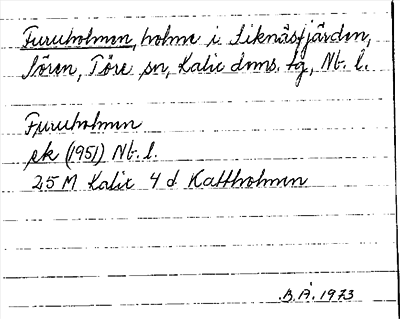 Furuholmen, holme i Siknäsfjärden,
Sören, Töre sn, Kalix dms. tg, Nb. l.
Furuholmen
ek (1951) Nb. l.
25 M Kalix 4 d Kattholmen
B.Å. 1973